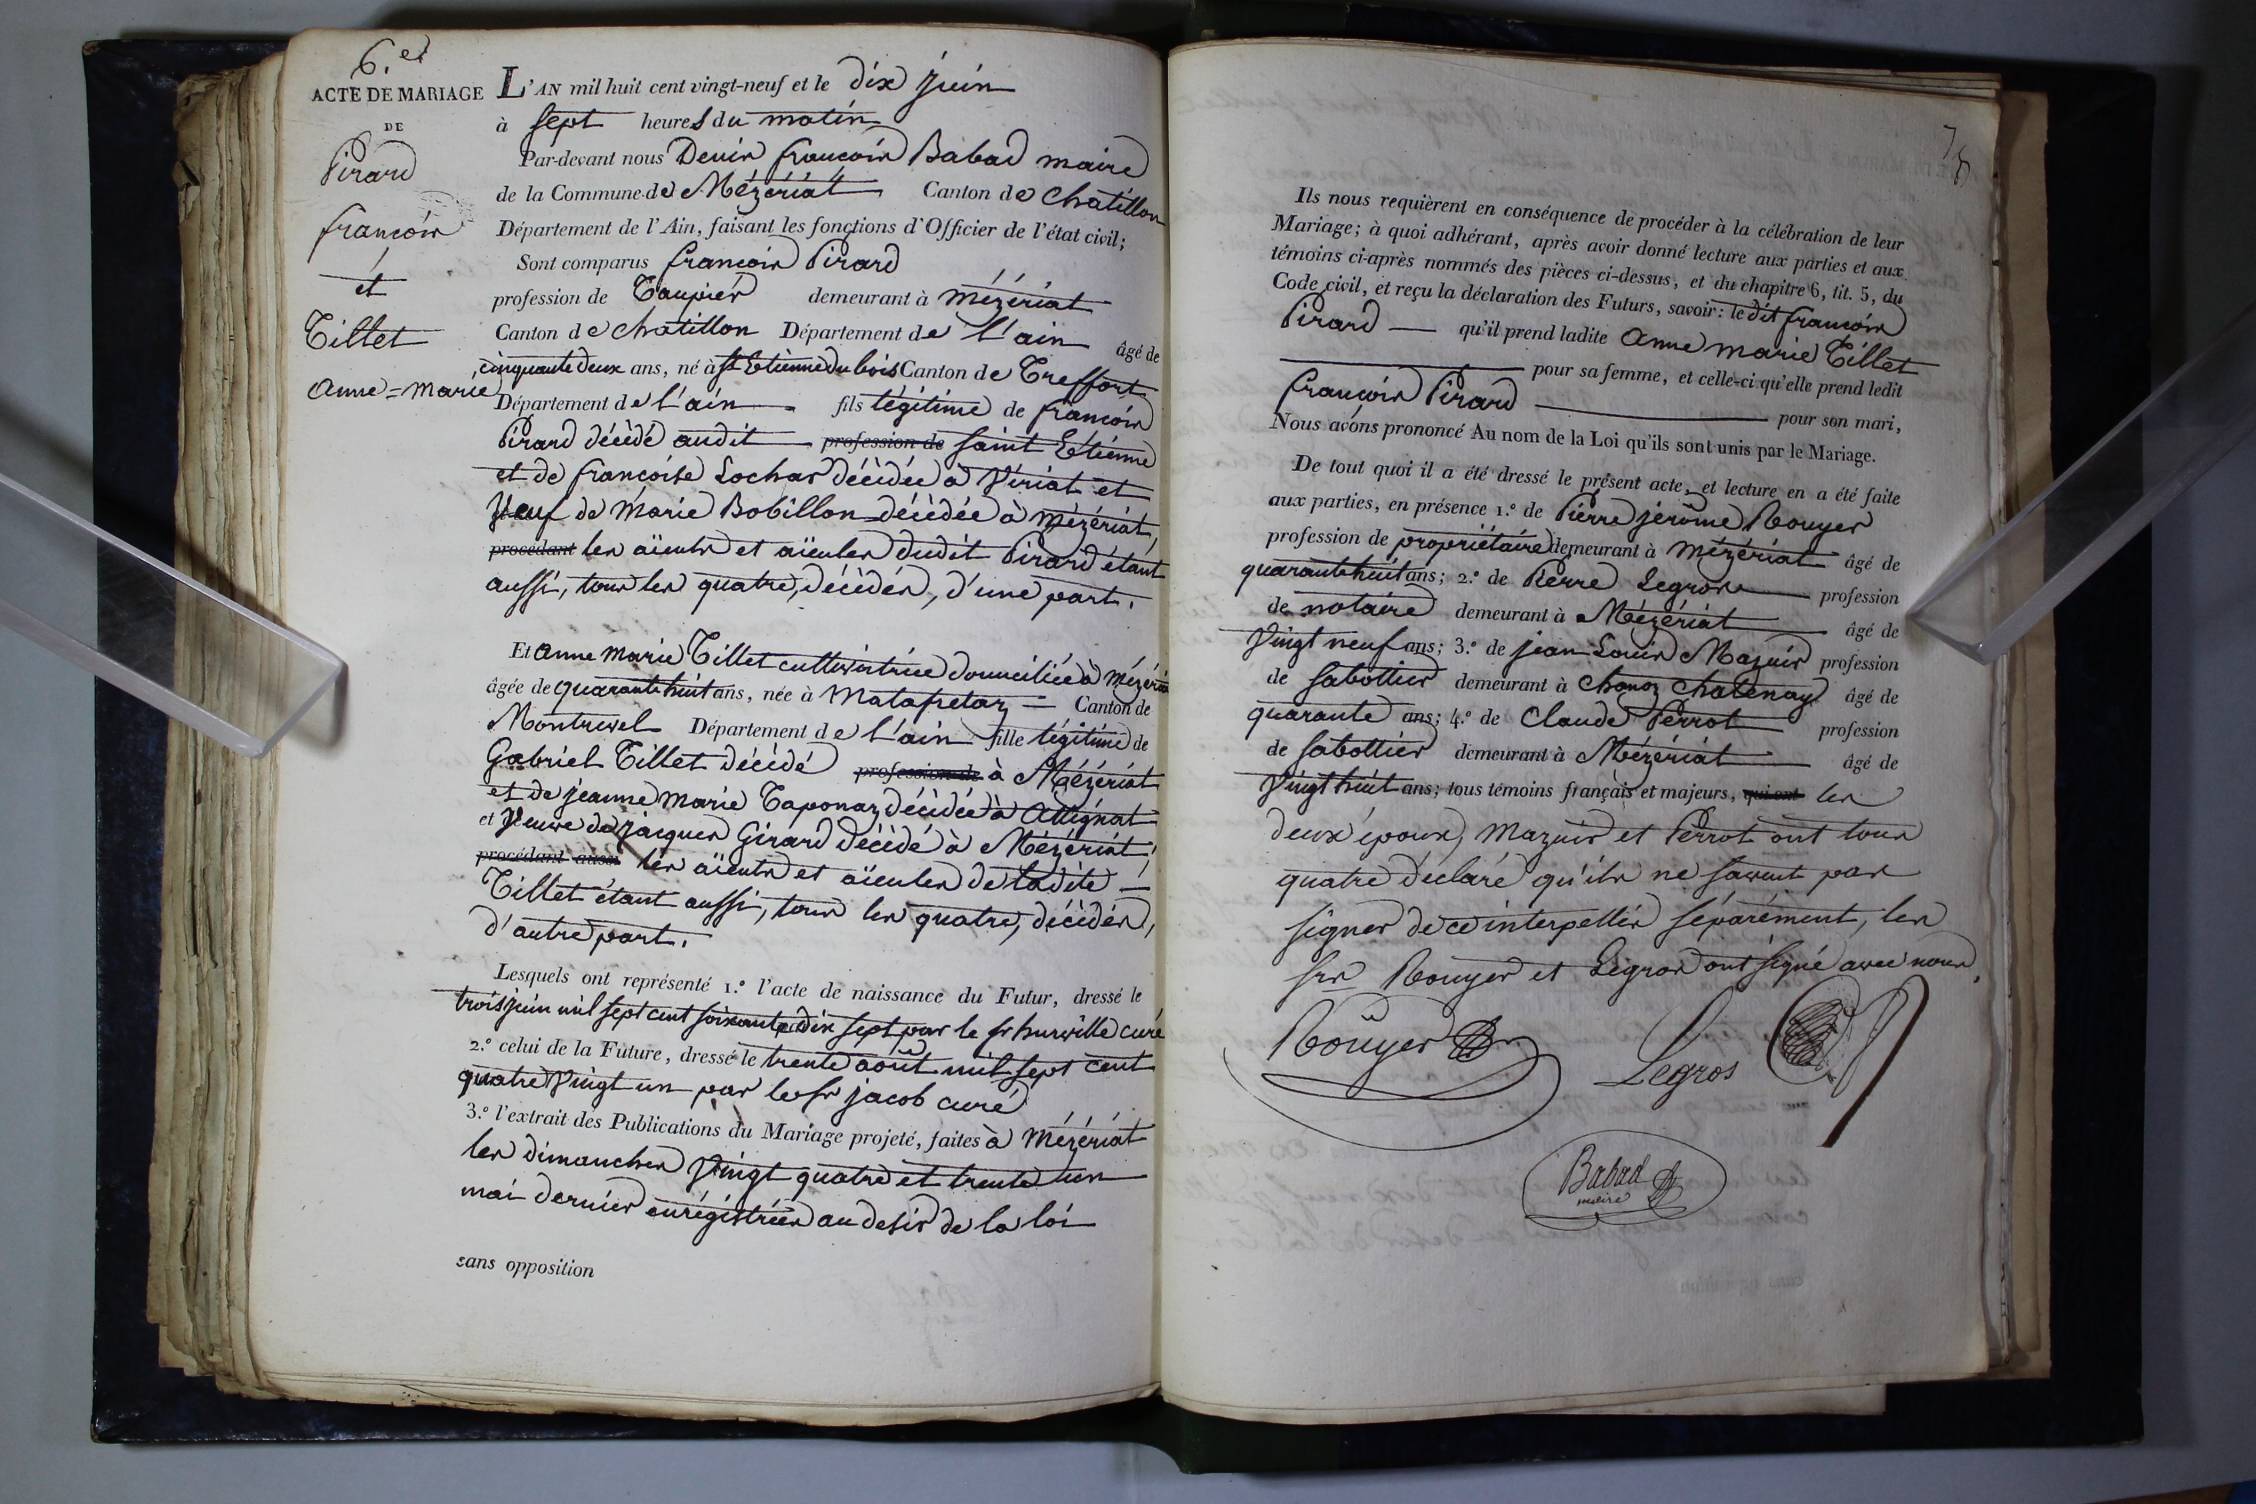 6.e
ACTE DE MARIAGE
DE
Pirard
françois
et
Tillet
Anne=Marie
L'AN mil huit cent vingt-neuf et le dix juin
à sept heures du matin
Par-devant nous Denis françois Babad maire
de la Commune de Mézériat Canton de chatillon
Département de l'Ain, faisant les fonctions d'Officier de l'état civil;
Sont comparus françois Pirard
profession de Taupier demeurant à mézériat
Canton de chatillon Département de l'ain âgé de
cinquante deux ans, né à st Etienne du bois Canton de Treffort
Département de l'ain fils légitime de françois
Pirard décédé audit profession de saint Etienne
et de françoise Lochas décédée à Viriat et
Veuf de Marie Bobillon décédée à mézériat,
procédant les aïeuls et aïeules dudit Pirard étant
aussi, tous les quatre, décédés, d'une part.
Et anne marie Tillet cultivatrice domiciliée à mézériat
âgée de quarante huit ans, née à Matafretaz Canton de
Montrevel Département de l'ain fille légitime de
Gabriel Tillet décédé profession de à Mézériat
et de jeanne marie Taponaz décédée à Attignat
et Veuve de jacques Girard décédé à Mézériat,
procédant aussi les aïeuls et aïeules de ladite
Tillet étant aussi, tous les quatre, décédés,
d'autre part.
Lesquels ont représenté 1.º l'acte de naissance du Futur, dressé le
trois juin mil sept cent soixante dix sept par le sr curé
2.º celui de la Future, dressé le trente août mil sept cent
quatre Vingt un par le sr jacob curé
3.º l'extrait des Publications du Mariage projeté, faites à Mézériat
les dimanches Vingt quatre et trente un
mai dernier enrégistrées au desir de la loi
sans opposition
Ils nous requièrent en conséquence de procéder à la célébration de leur
Mariage; à quoi adhérant, après avoir donné lecture aux parties et aux
témoins ci-après nommés des pièces ci-dessus, et du chapitre 6, tit. 5, du
Code civil, et reçu la déclaration des Futurs, savoir: le dit françois
Pirard qu'il prend ladite anne marie Tillet
pour sa femme, et celle-ci qu'elle prend ledit
françois Pirard pour son mari,
Nous avons prononcé Au nom de la Loi qu'ils sont unis par le Mariage.
De tout quoi il a été dressé le présent acte, et lecture en a été faite
aux parties, en présence 1.º de Pierre jérôme Rouyer
profession de propriétaire demeurant à mézériat âgé de
quarante huit ans; 2.º de Pierre Legros profession
de notaire demeurant à Mézériat âgé de
Vingt neuf ans; 3.º de jean Louis Mazuir profession
de sabottier demeurant à chanoz chatenay âgé de
quarante ans; 4.º de Claude Perrot profession
de sabottier demeurant à Mézériat âgé de
Vingt huit ans; tous témoins français et majeurs, qui ont les
deux époux, Mazuir et Perrot ont tous
quatre déclaré qu'ils ne savent pas
signer de ce interpellés séparément, les
srs Rouyer et Legros ont signé avec nous.
Rouyer
Legros
Babad
maire